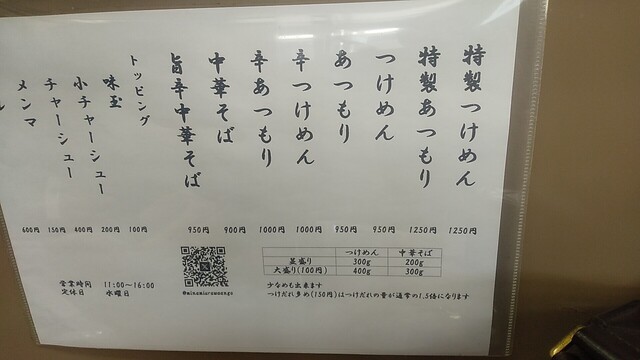 特製つけめん 1250円
特製あつもり 1250円
つけめん 950円
あつもり 950円
辛つけめん 1000円
辛あつもり 1000円
中華そば 900円
旨辛中華そば 950円
トッピング
味玉 100円
小チャーシュー 200円
チャーシュー 400円
メンマ 150円
ル 600円
つけめん 中華そば
並盛り 300g 200g
大盛り(100円) 400g 300g
少なめも出来ます
つけだれ多め(150円)はつけだれの量が通常の1.5倍になります
営業時間 11:00~16:00
定休日 水曜日